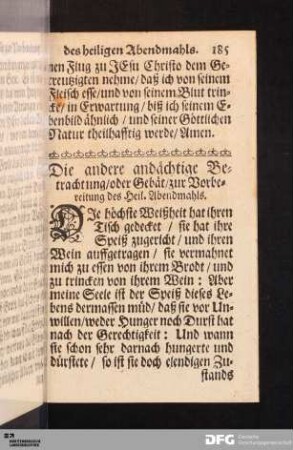 des heiligen Abendmahls. 185
nen Flug zu JEsu Christo dem Ge-
creutzigten nehme/ daß ich von seinem
Fleisch esse/ und von seinem Blut trin-
cke/ in Erwartung/ biß ich seinem E-
benbild ähnlich / und seiner Göttlichen
Natur theilhafftig werde/ Amen.
Die andere andächtige Be-
trachtung/oder Gebät/zur Vorbe-
reitung des Heil. Abendmahls.
DIe höchste Weißheit hat ihren
Tisch gedecket / sie hat ihre
Speiß zugericht/ und ihren
Wein auffgetragen / sie vermahnet
mich zu essen von ihrem Brodt/ und
zu trincken von ihrem Wein: Aber
meine Seele ist der Speiß dieses Le-
bens dermassen müd/ daß sie vor Un-
willen/weder Hunger noch Durst hat
nach der Gerechtigkeit: Und wann
sie schon sehr darnach hungerte und
dürstete/ so ist sie doch elendigen Zu-
stands
DFG Deutsche
Forschungsgemeinschaft